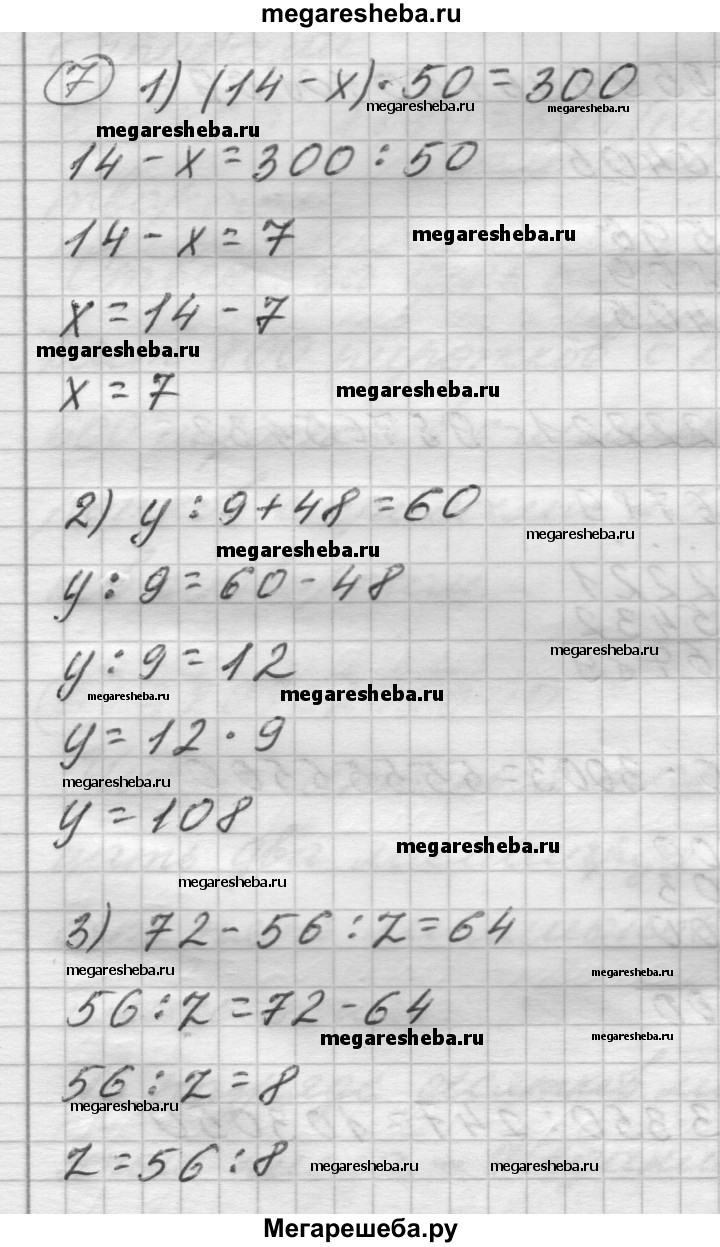 megaresheba.ru
7 1) (14 - x) · 50 = 300
megaresheba.ru
megaresheba.ru
megaresheba.ru
14 - x = 300 : 50
14 - x = 7
megaresheba.ru
x = 14 - 7
megaresheba.ru
x = 7
megaresheba.ru
2) y : 9 + 48 = 60
megaresheba.ru
megaresheba.ru
y : 9 = 60 - 48
y : 9 = 12
megaresheba.ru
megaresheba.ru
megaresheba.ru
y = 12 · 9
megaresheba.ru
y = 108
megaresheba.ru
megaresheba.ru
3) 72 - 56 : z = 64
megaresheba.ru
megaresheba.ru
56 : z = 72 - 64
megaresheba.ru
megaresheba.ru
56 : z = 8
megaresheba.ru
z = 56 : 8
megaresheba.ru
megaresheba.ru
Мегарешеба.ру